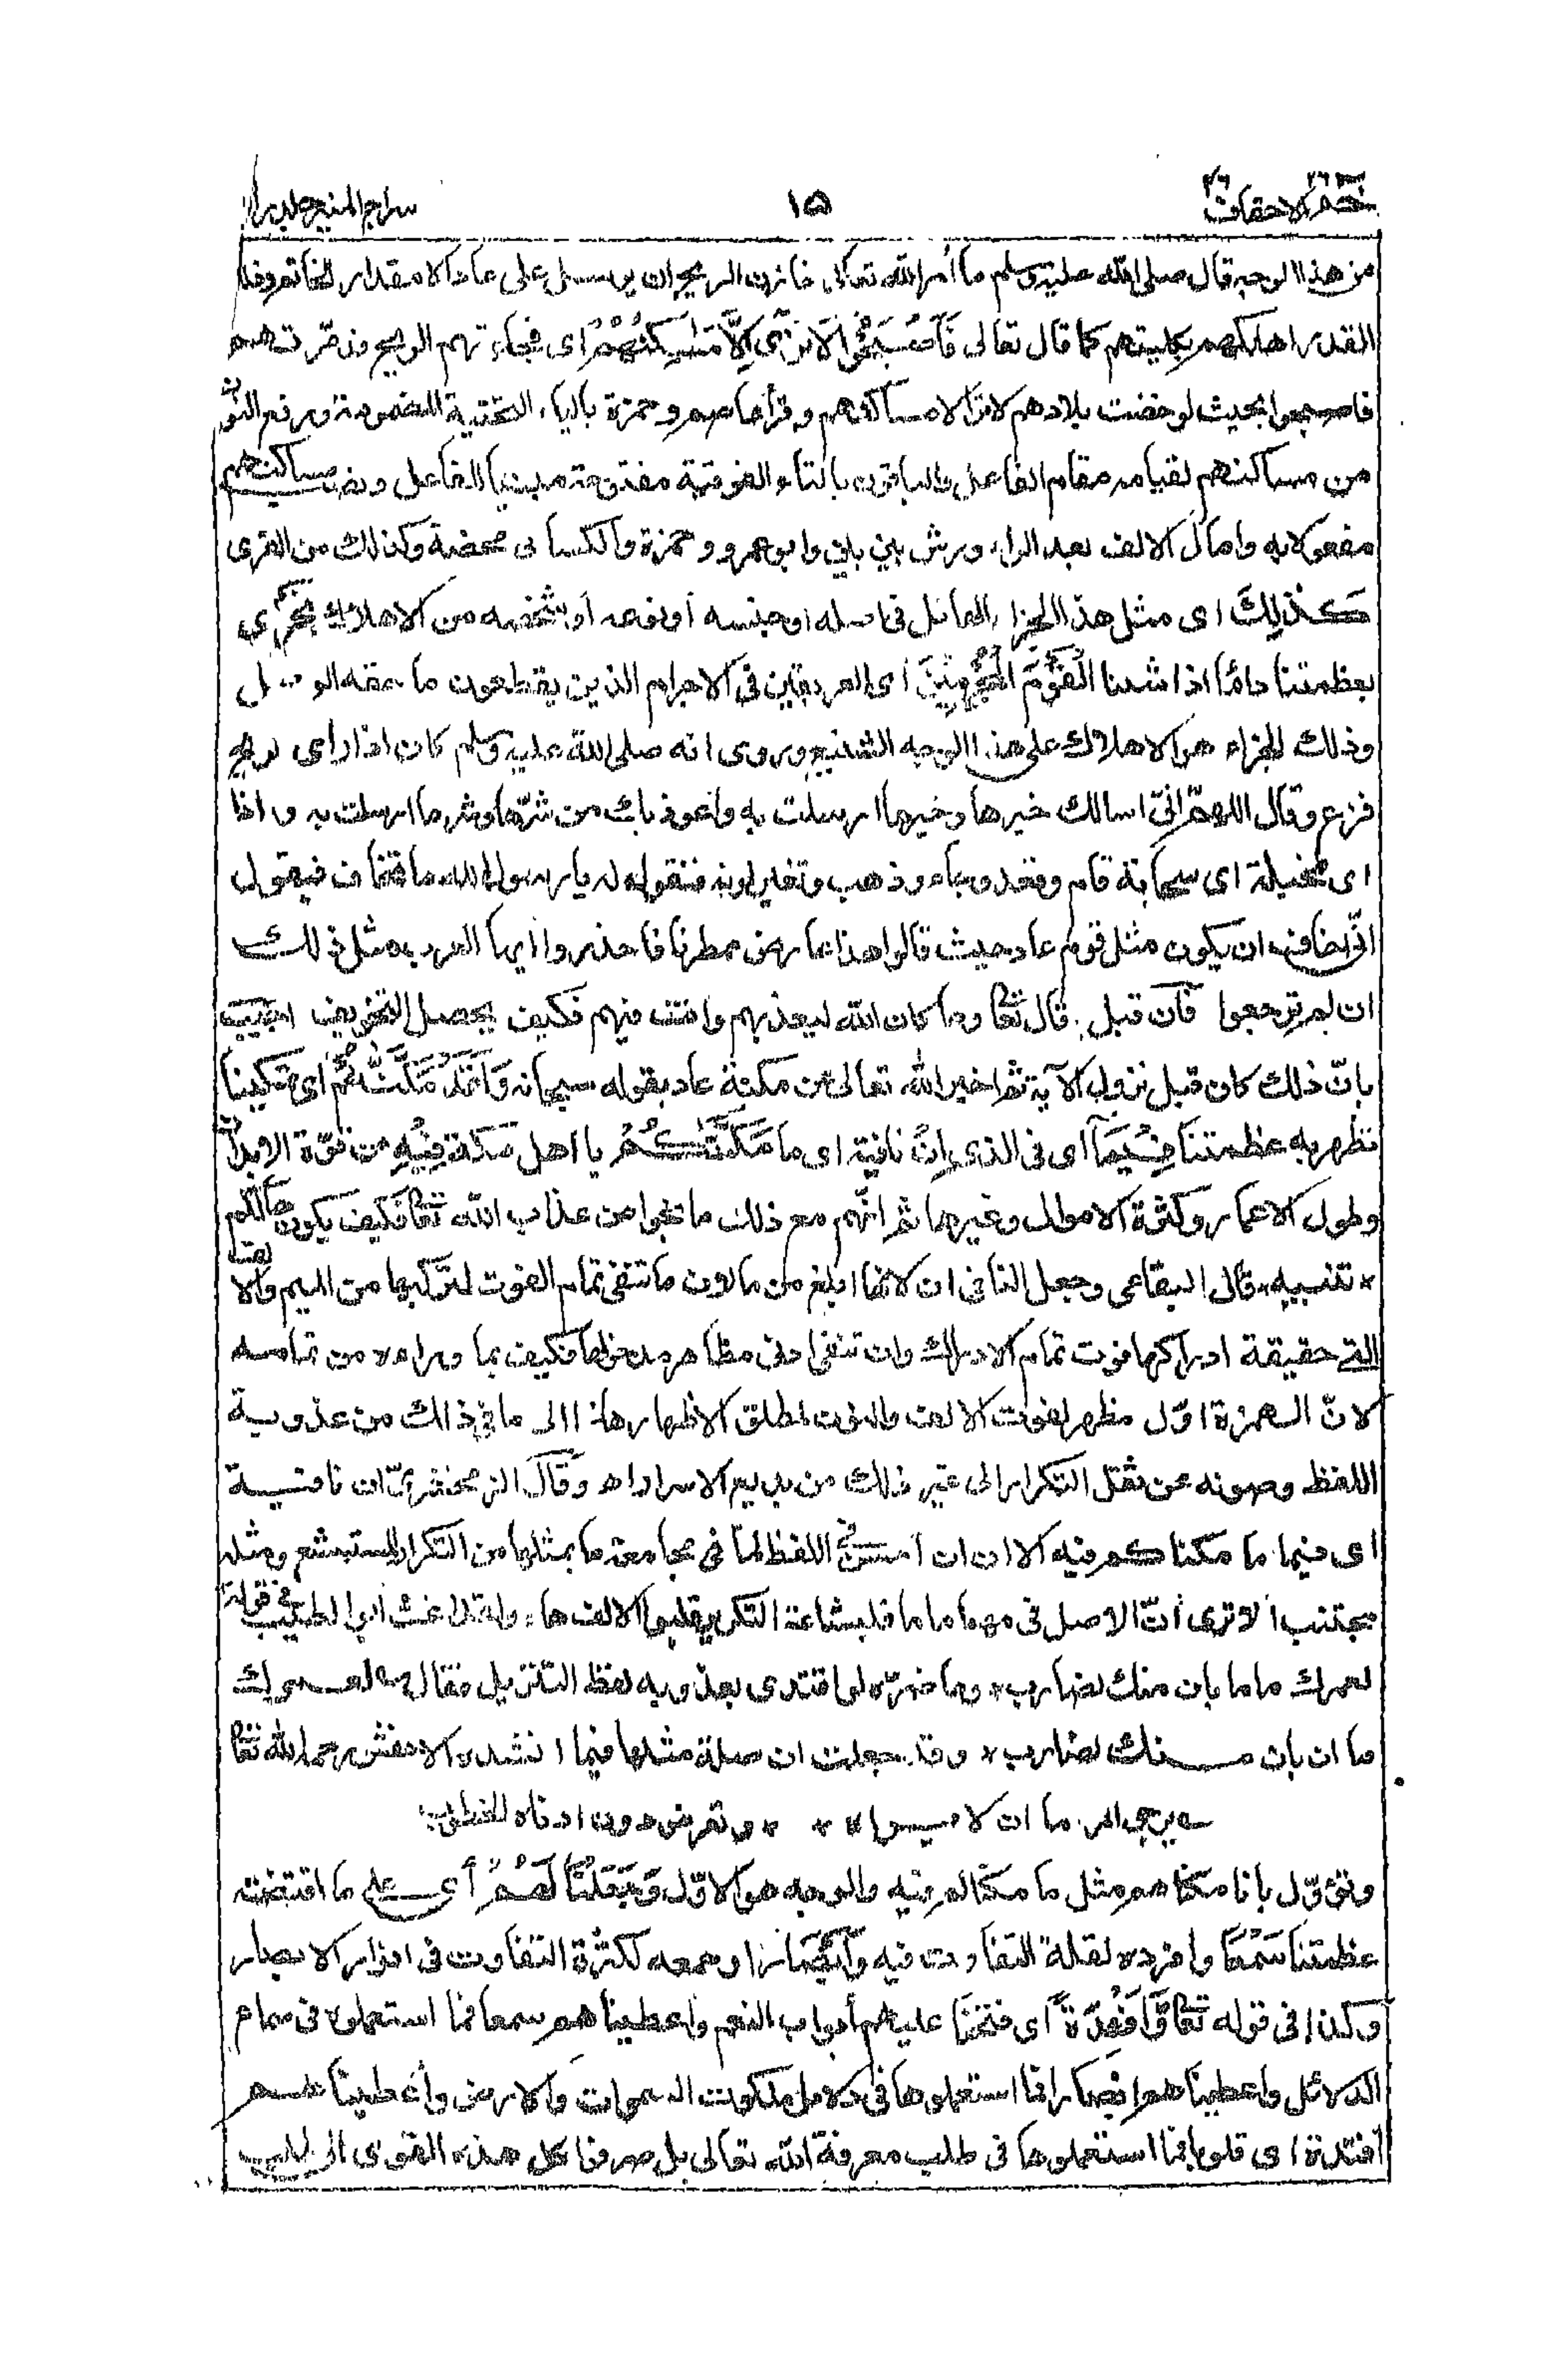 حٰمٓ ٢٦ الاحقاف ٤٦
١٥
سراج المنير جلد
من هذا الوجه قال صلى الله عليه وسلم ما أمر الله تعالى خازن الريح ان يرسل على عاد الا مقدار
القدر اهلكهم بكليتهم كما قال تعالى فَاَصْبَحُوْا لَا تَرٰٓى اِلَّا مَسٰكِنُهُمْ اى فجاءتهم الريح فدمّرتهم
فاصبحوا بحيث لو حضرت بلادهم لا ترا الا مساكنهم وقرأ عاصم وحمزة بالياء التحتية المضمومة ورفع النون
من مساكنهم لقيامه مقام الفاعل والباقون بالتاء الفوقية مفتوحة مبنيا للفاعل ونصب مساكنهم
مفعولا به وامال الالف بعد الراء ورش بين بين وابو عمرو وحمزة والكسائى محضة وكذلك من القرى
كَذٰلِكَ اى مثل هذا الجزاء الهائل فى اصله او جنسه او نوعه او شخصه من الاهلاك نَجْزِى
بعظمتنا دائما اذا شئنا الْقَوْمَ الْمُجْرِمِيْنَ اى العريقين فى الاجرام الذين يقطعون ما حقه الوصل
وذلك الجزاء هو الاهلاك على هذا الوجه الشنيع وروى انه صلى الله عليه وسلم كان اذا راى الريح
فزع وقال اللهمّ انىّ اسالك خيرها وخير ما ارسلت به واعوذ بك من شرّها وشر ما ارسلت به واذا
اى مخيلة اى سحابة قام وقعد وجاء وذهب وتغير لونه فنقول له يا رسول الله ما تخاف فيقول
انّى اخاف ان يكون مثل قوم عاد حيث قالوا هذا عارض ممطرنا فاحذروا ايها العرب مثل ذلك
ان لم ترجعوا فان قيل قال تعالى وما كان الله ليعذبهم وانت فيهم فكيف يحصل التخويف اجيب
بانّ ذلك كان قبل نزول الآية ثم اخبر الله تعالى عن مكنة عاد بقوله سبحانه وَلَقَدْ مَكَّنّٰهُمْ اى تمكينا
تظهر به عظمتنا فِيْمَآ اى فى الذى اِنْ نافية اى ما مَّكَّنّٰكُمْ يا اهل مكة فِيْهِ من قوّة الابدان
وطول الاعمار وكثرة الاموال وغيرها ثم انّهم مع ذلك ما نجوا من عذاب الله تعالى فكيف يكون حالكم
* تنبيه * قال البقاعى وجعل النافى ان لانها ابلغ من ما لان ما تنفى تمام الفوت لتركبها من الميم والالف
التى حقيقة ادراكها فوت تمام الادراك وان تنفى ادنى مظاهر مدخولها فكيف بما وراءه من تمامه
لانّ الهمزة اوّل مظهر لفوت الالف والنون لمطلق الاظهار هذا الى ما فى ذلك من عذوبة
اللفظ وصونه عن ثقل التكرار الى غير ذلك من بديع الاسرار اه وقال الزمخشرى ان نافية
اى فيما ما مكناكم فيه الا ان ان احسن فى اللفظ لما فى مجامعة ما بمثلها من التكرار المستبشع ومثله
مجتنب الا ترى أنّ الاصل فى مهما ما ما فلبشاعة التكرير قلبوا الالف هاء ولقد اغث ابو الطيب فى قوله
لعمرك ما ما بان منك لضارب * وما ضرّه لو اقتدى بعذوبة لفظ التنزيل فقال لعمرك
ما ان بان منك لضارب * وقد جعلت ان صلة مثلها فيما انشده الاخفش رحمه الله تعالى
يرجى المرء ما ان لا يراه * * * وتعرض دون ادناه الخطوب
وتؤوّل بانا مكناهم مثل ما مكنا لهم فيه والوجه هو الاوّل وَجَعَلْنَا لَهُمْ أى على ما اقتضته
عظمتنا سَمْعًا وافرده لقلة التفاوت فيه وَّاَبْصَارًا وجمعه لكثرة التفاوت فى انوار الابصار
وكذا فى قوله تعالى وَّاَفْئِدَةً اى فتحنا عليهم أبواب النعم واعطيناهم سمعا فما استعملوه فى سماع
الدلائل واعطيناهم ابصارا فما استعملوها فى دلائل ملكوت السموات والارض وأعطيناهم
أفئدة اى قلوبا فما استعملوها فى طلب معرفة الله تعالى بل صرفوا كل هذه القوى الى طلب